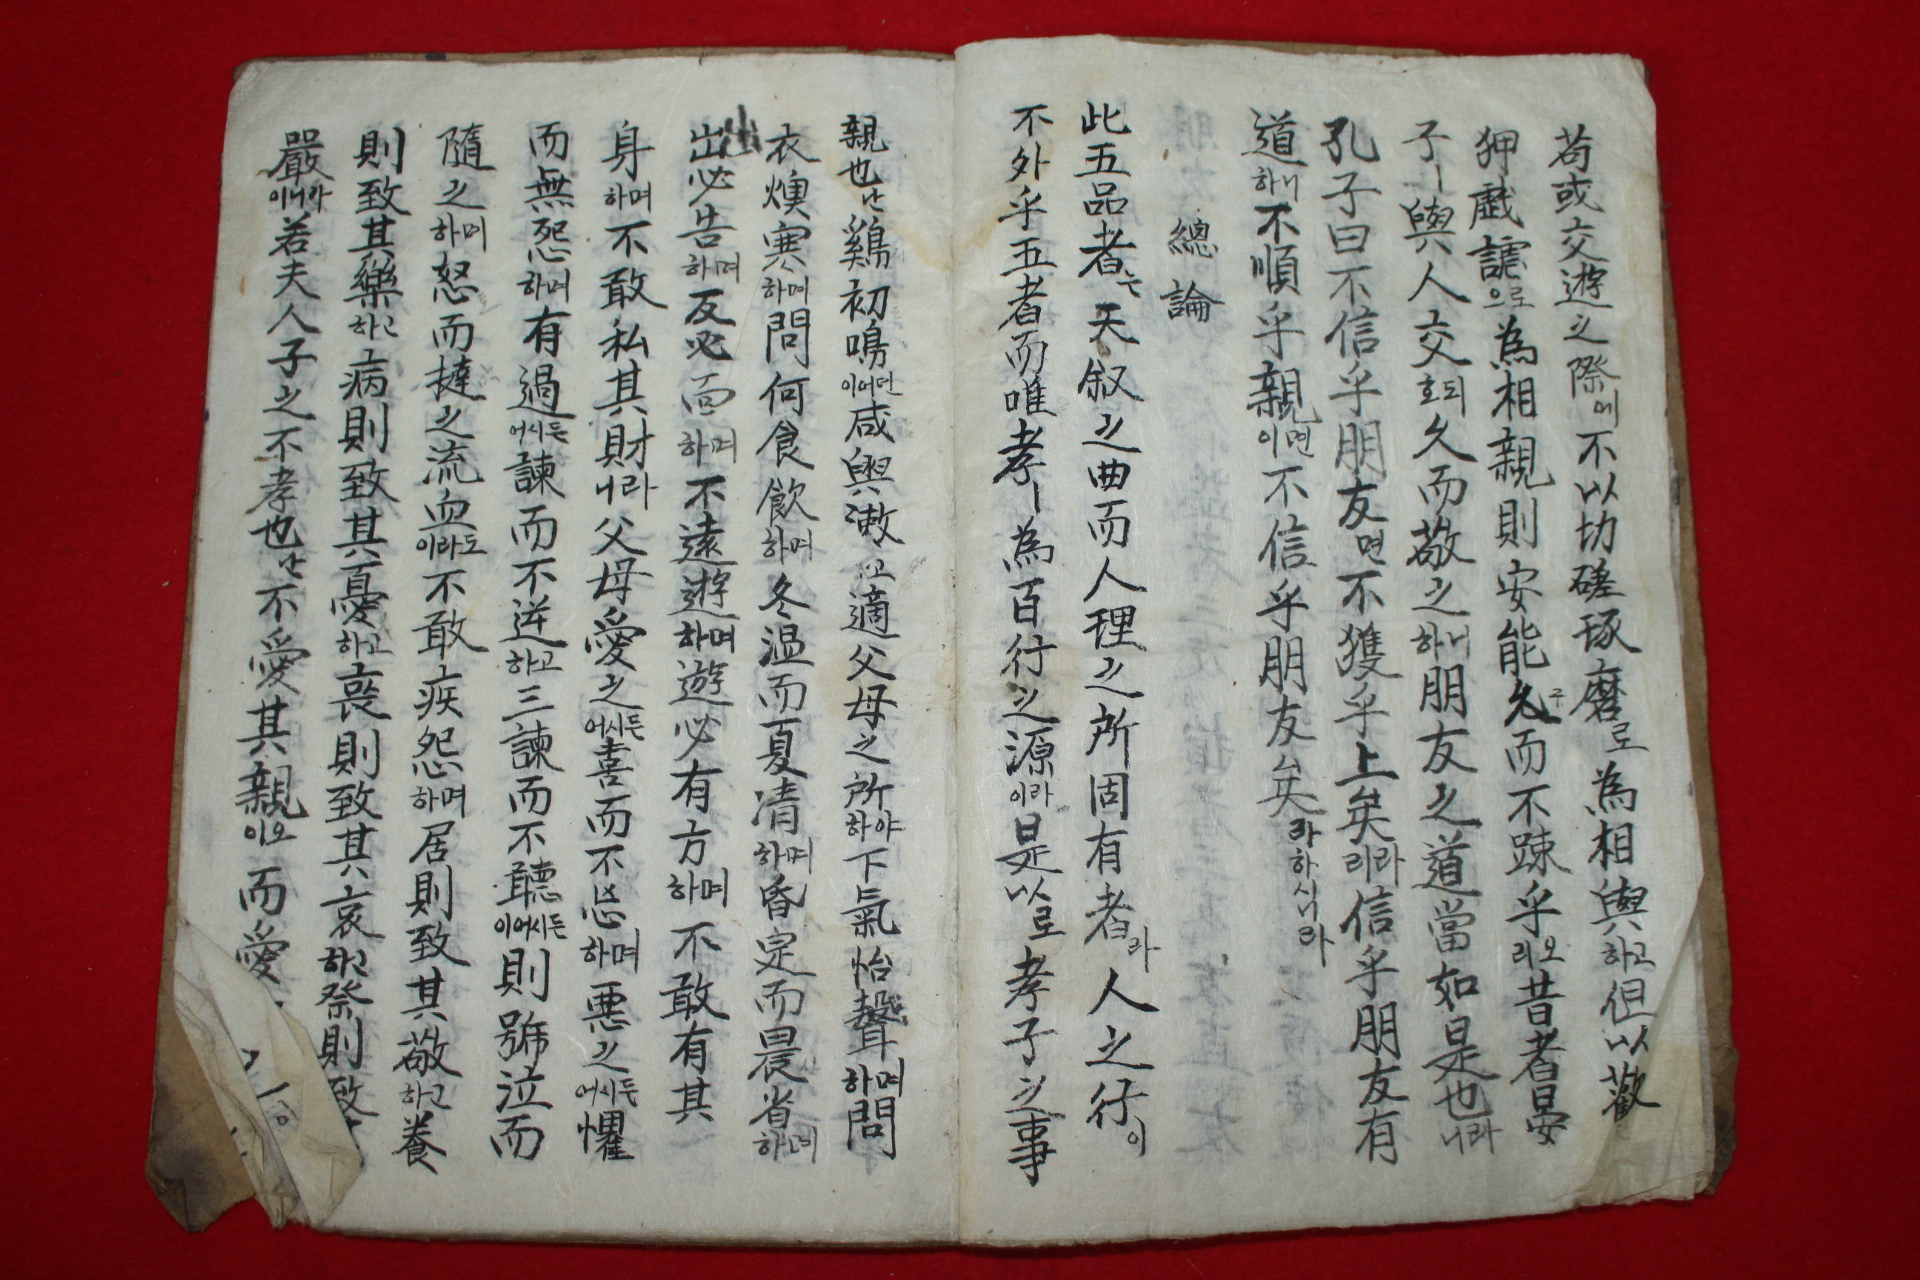 苟或交遊之際에不以切磋琢磨로為相與하고但以歡
狎戱謔으로為相親則安能久而不踈乎리오昔者晏
子ㅣ與人交호되久而敬之하니朋友之道當如是也니라
孔子曰不信乎朋友면不獲乎上矣리라信乎朋友有
道하니不順乎親이면不信乎朋友矣라하시니라
總論
此五品者는天叙之典而人理之所固有者라人之行이
不外乎五者而唯孝ㅣ為百行之源이라是以로孝子之事
親也난鷄初鳴이어던咸與漱고適父母之所하야下氣怡聲하며問
衣燠寒하며問何食飮하며冬温而夏凊하며昏定而晨省하며
出必告하며反必面하며不遠遊하며遊必有方하며不敢有其
身하며不敢私其財니라父母愛之어시든喜而不忘하며惡之어시든懼
而無怨하며有過어시든諫而不逆하고三諫而不聽이어시든則號泣而
隨之하며怒而撻之流血이라도不敢疾怨하며居則致其敬하고養
則致其樂하고病則致其憂하고喪則致其哀하고祭則致
嚴이니라若夫人子之不孝也난不愛其親이오而愛